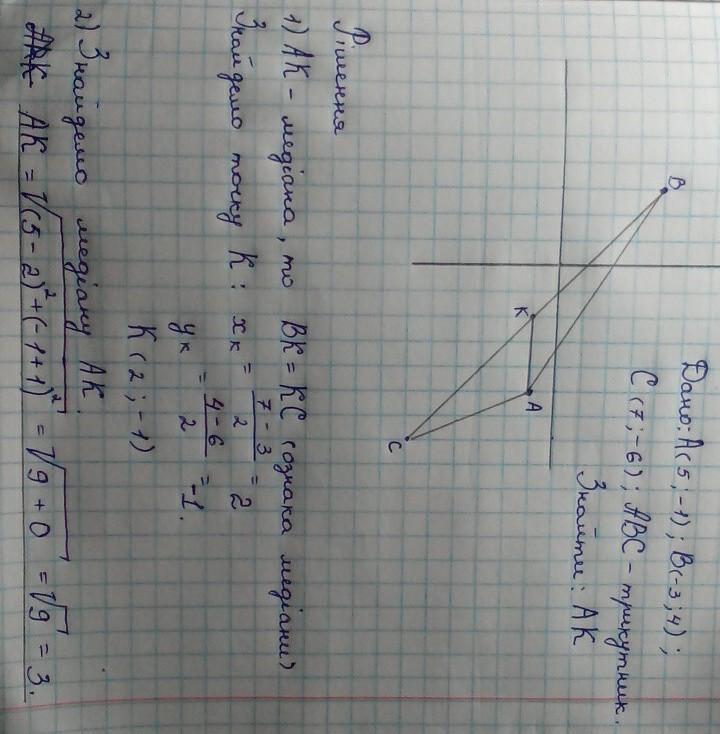 Дано: A(5; -1); B(-3; 4);
C(7; -6); ABC - трикутник.
Знайти: AK
B
K
A
C
Рішення
1) AK - медіана, то BK = KC (ознака медіани)
Знайдемо точку K: x_K = \frac{7-3}{2} = 2
y_K = \frac{4-6}{2} = -1.
K(2; -1)
2) Знайдемо медіану AK.
AK = \sqrt{(5-2)^2 + (-1+1)^2} = \sqrt{9+0} = \sqrt{9} = 3.